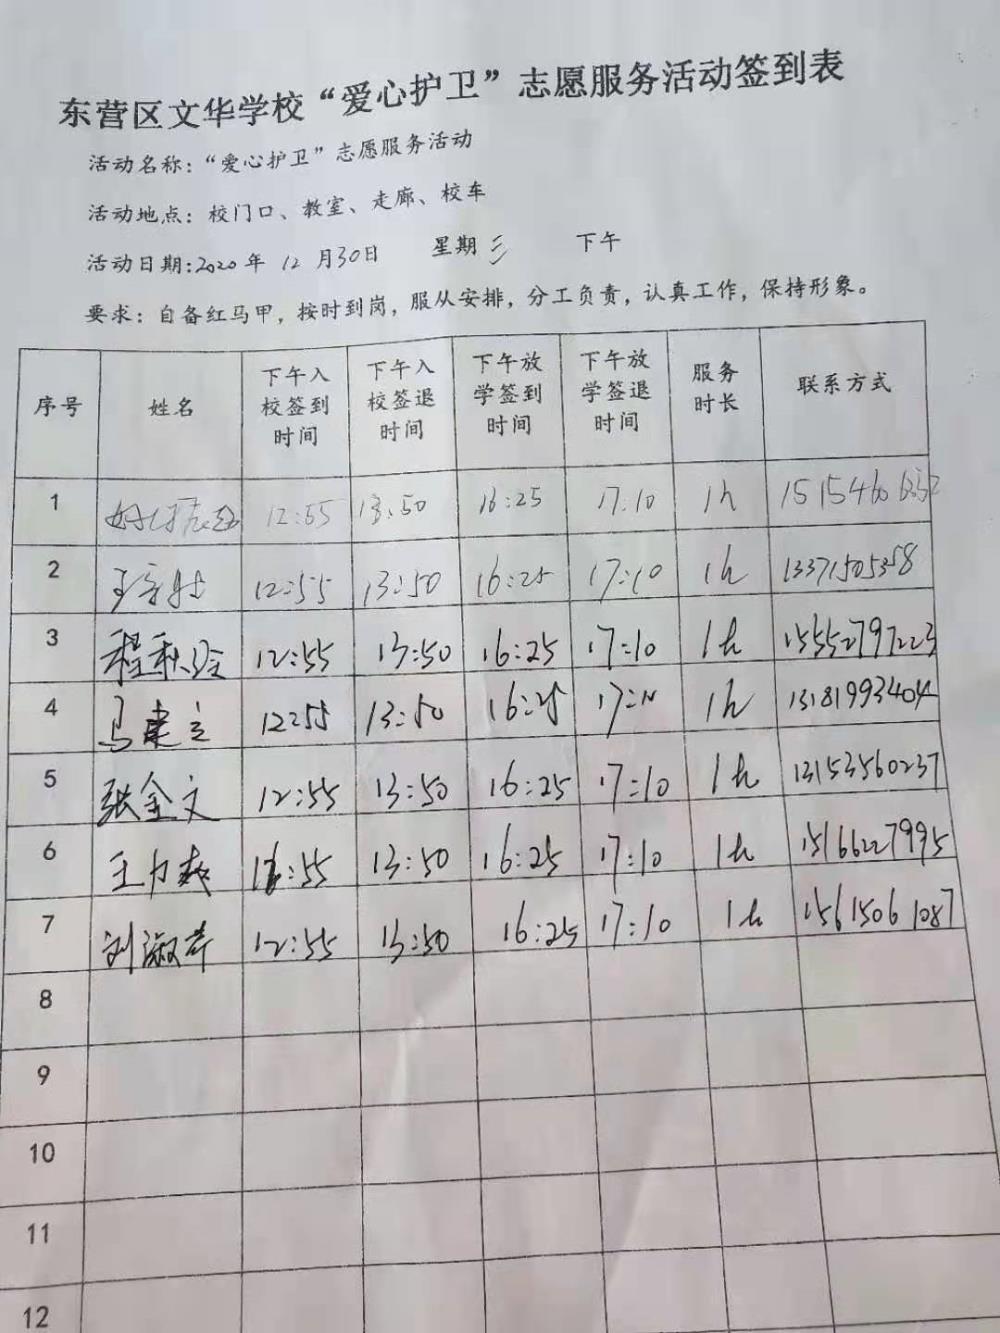 东营区文华学校“爱心护卫”志愿服务活动签到表
活动名称：“爱心护卫”志愿服务活动
活动地点：校门口、教室、走廊、校车
活动日期：2020年 12月30日 星期三 下午
要求：自备红马甲，按时到岗，服从安排，分工负责，认真工作，保持形象。
序号 姓名 下午入校签到时间 下午入校签退时间 下午放学签到时间 下午放学签退时间 服务时长 联系方式
1 12:55 13:50 16:25 17:10 1h
2 12:55 13:50 16:25 17:10 1h 13371505358
3 程秋玲 12:55 13:50 16:25 17:10 1h 15552797223
4 马建立 12:55 13:50 16:25 17:10 1h 13181993404
5 张金文 12:55 13:50 16:25 17:10 1h 13153560237
6 12:55 13:50 16:25 17:10 1h 15166227995
7 刘淑芹 12:55 13:50 16:25 17:10 1h 15615061087
8
9
10
11
12